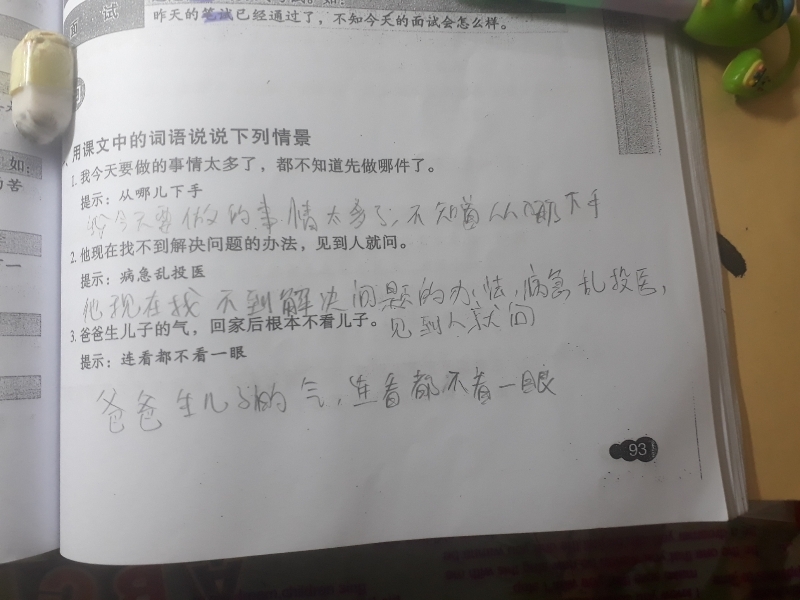 面试
昨天的笔试已经通过了，不知今天的面试会怎么样。
用课文中的词语说说下列情景
1. 我今天要做的事情太多了，都不知道先做哪件了。
提示：从哪儿下手
我今天要做的事情太多了，不知道从哪下手
2. 他现在找不到解决问题的办法，见到人就问。
提示：病急乱投医
他现在找不到解决问题的办法，病急乱投医，
见到人就问
3. 爸爸生儿子的气，回家后根本不看儿子。
提示：连看都不看一眼
爸爸生儿子的气，连看都不看一眼
93
如：